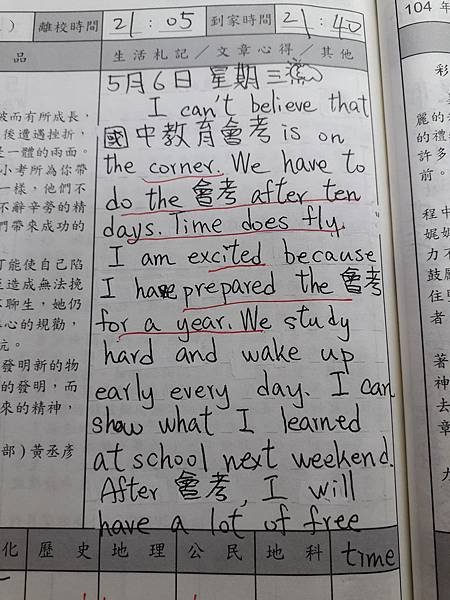 離校時間 21：05 到家時間 21：40
品
生活札記／文章心得／其他
而有所成長，
後遭遇挫折，
是一體的兩面。
小考所為你帶
一樣，他們不
不辭辛勞的精
們帶來成功的
可能使自己陷
至造成無法挽
不聊生，她仍
心的規勸，
抗。
發明新的物
的發明，而
來的精神，
部)黃丞彥
5月6日 星期三
I can't believe that
國中教育會考 is on
the corner. We have to
do the 會考 after ten
days. Time does fly.
I am excited because
I have prepared the 會考
for a year. We study
hard and wake up
early every day. I can
show what I learned
at school next weekend.
After 會考, I will
have a lot of free
time
化 歷史 地理 公民 地科
104年
彩
麗的
的禮
許多
前。
程中
妮妮
力不
鼓
住
者
著
神
去
章